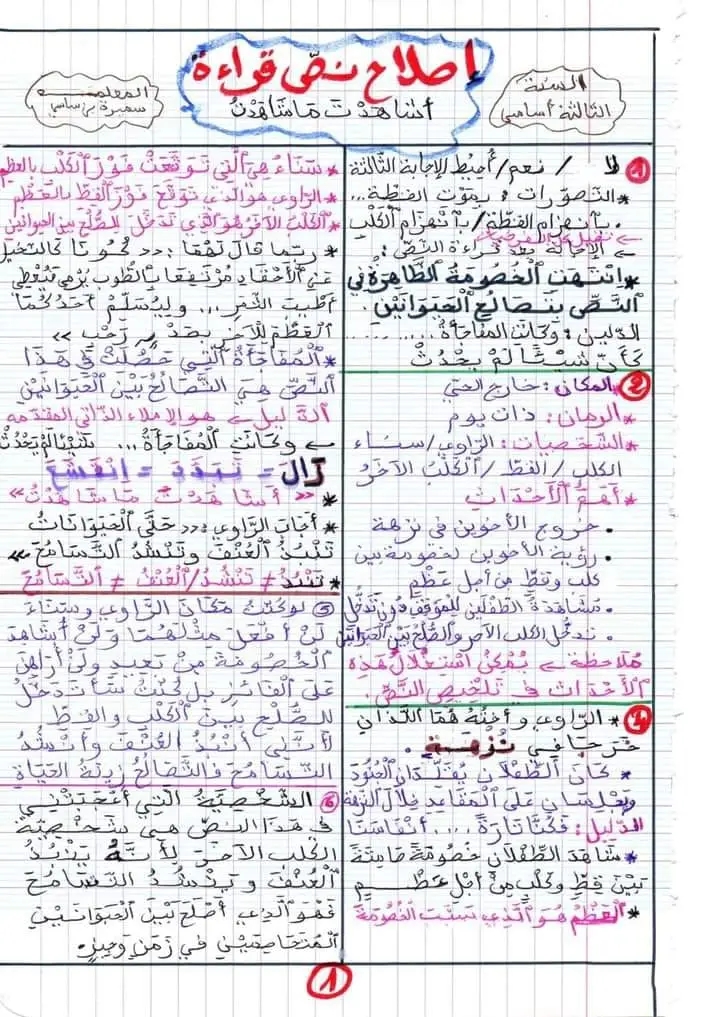 إصلاح نصّ قراءة
أشاهدت ما شاهدْتُ
السنة
الثالثة أساسي
المعلمة
سميرة بن ساسي
① لا / نعم / أحيط الإجابة الثالثة
* التصورات: بموت القطة...
. بانهزام القطة / بانهزام الكلب
الإجابة بعد قراءة النّصّ:
* انتهت الخصومة الظاهرة في
النّصّ بتصالح الحيوانين
الدليل: وكانت المفاجأة ......
كأنّ شيئًا لم يحدثْ
② * المكان: خارج الحيّ
* الزمان: ذات يوم
* الشخصيات: الراوي / سناء
الكلب / القط / الكلب الآخر
* أهمّ الأحداث
. خروج الأخوين في نزهة
. رؤية الأخوين لخصومة بين
كلب وقطّ من أجل عظْم
. مشاهدة الطفلين للموقف دون تدخّل
. تدخّل الكلب الآخر والصّلح بين الحيوانين
ملاحظة ← يمكن استغلال هذه
الأحداث في تلخيص النّصّ.
* الرّاوي وأخته هما اللّذان
خرجا في نُزهة.
* كان الطّفلان يقلّدان الجنود
ويجلسان على المقاعد خلال النزهة
الدّليل: فكنّا تارة .... أنفاسنا
* شاهد الطّفلان خصومة حامية
بين قطّ وكلب من أجل عظم
* العظم هو الّذي سبّب الخصومة
* سناء هي الّتي توقّعت فوز الكلب بالعظم
* الرّاوي هو الّذي توقّع فوز القطّ بالعظم
* الكلب الآخر هو الّذي تدخّل للصّلح بين الحيوانين
* ربّما قال لهما: «كونا كالنّخيل
عن الأحقاد مرتفعا بالطّوب يُرمى فيُعطي
أطيب الثّمر ... وليسلّم أحدكما
العظم للآخر بصدر رحب»
* المفاجأة الّتي حصلت في هذا
النّصّ هي التّصالح بين الحيوانين
الدّليل ← هو الإملاء الذّاتي المقدّمة
← وكانت المفاجأة ... شيئا لم يحدثْ
زال = تبدّد = انقشع
* «أشاهدت ما شاهدْتُ»
* أجاب الرّاوي: «حتّى الحيوانات
تنبذ العنف وتنشد التّسامح»
* تنبذ ≠ تنشد / العنف ≠ التّسامح
⑤ لو كنت مكان الرّاوي وسناء
لن أفعل مثلهما ولن أشاهد
الخصومة من بعيد ولن أراهن
على الفائز بل كنت سأتدخّل
للصّلح بين الكلب والقطّ
لأنّني أنبذ العنف وأنشد
التّسامح والتّصالح زينة الحياة
⑥ الشّخصيّة الّتي أعجبتني
في هذا النّصّ هي شخصيّة
الكلب الآخر لأنّه ينبذ
العنف وينشد التّسامح
فهو الّذي أصلح بين الحيوانين
المتخاصمين في زمن وجيز.
1